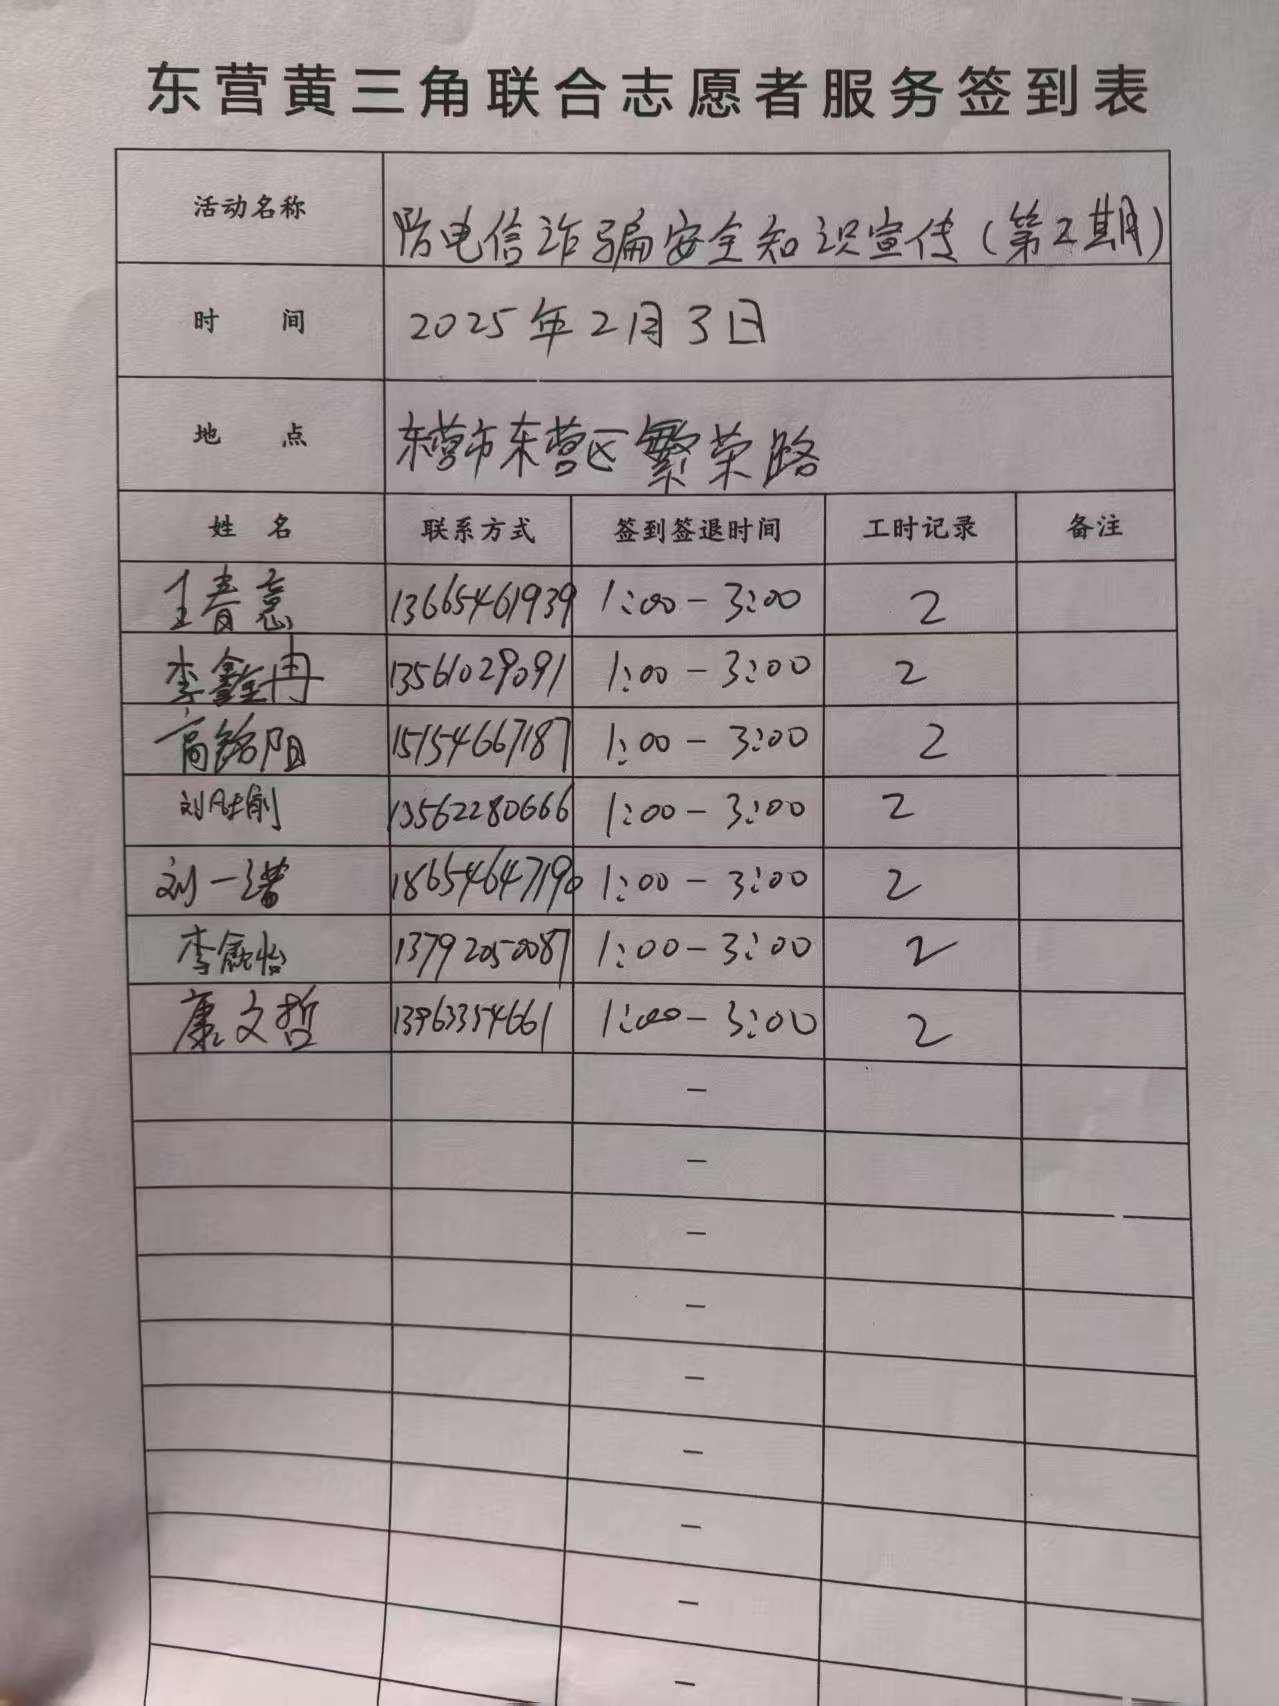 东营黄三角联合志愿者服务签到表
活动名称 防电信诈骗安全知识宣传（第2期）
时 间 2025年2月3日
地 点 东营市东营区繁荣路
姓 名 联系方式 签到签退时间 工时记录 备注
王春意 13665461939 1:00-3:00 2
李鑫冉 13561029091 1:00-3:00 2
高铭阳 15154667187 1:00-3:00 2
刘胜前 13562280666 1:00-3:00 2
刘一诺 18654647190 1:00-3:00 2
李鑫怡 13792050087 1:00-3:00 2
康文哲 13963354661 1:00-3:00 2
-
-
-
-
-
-
-
-
-